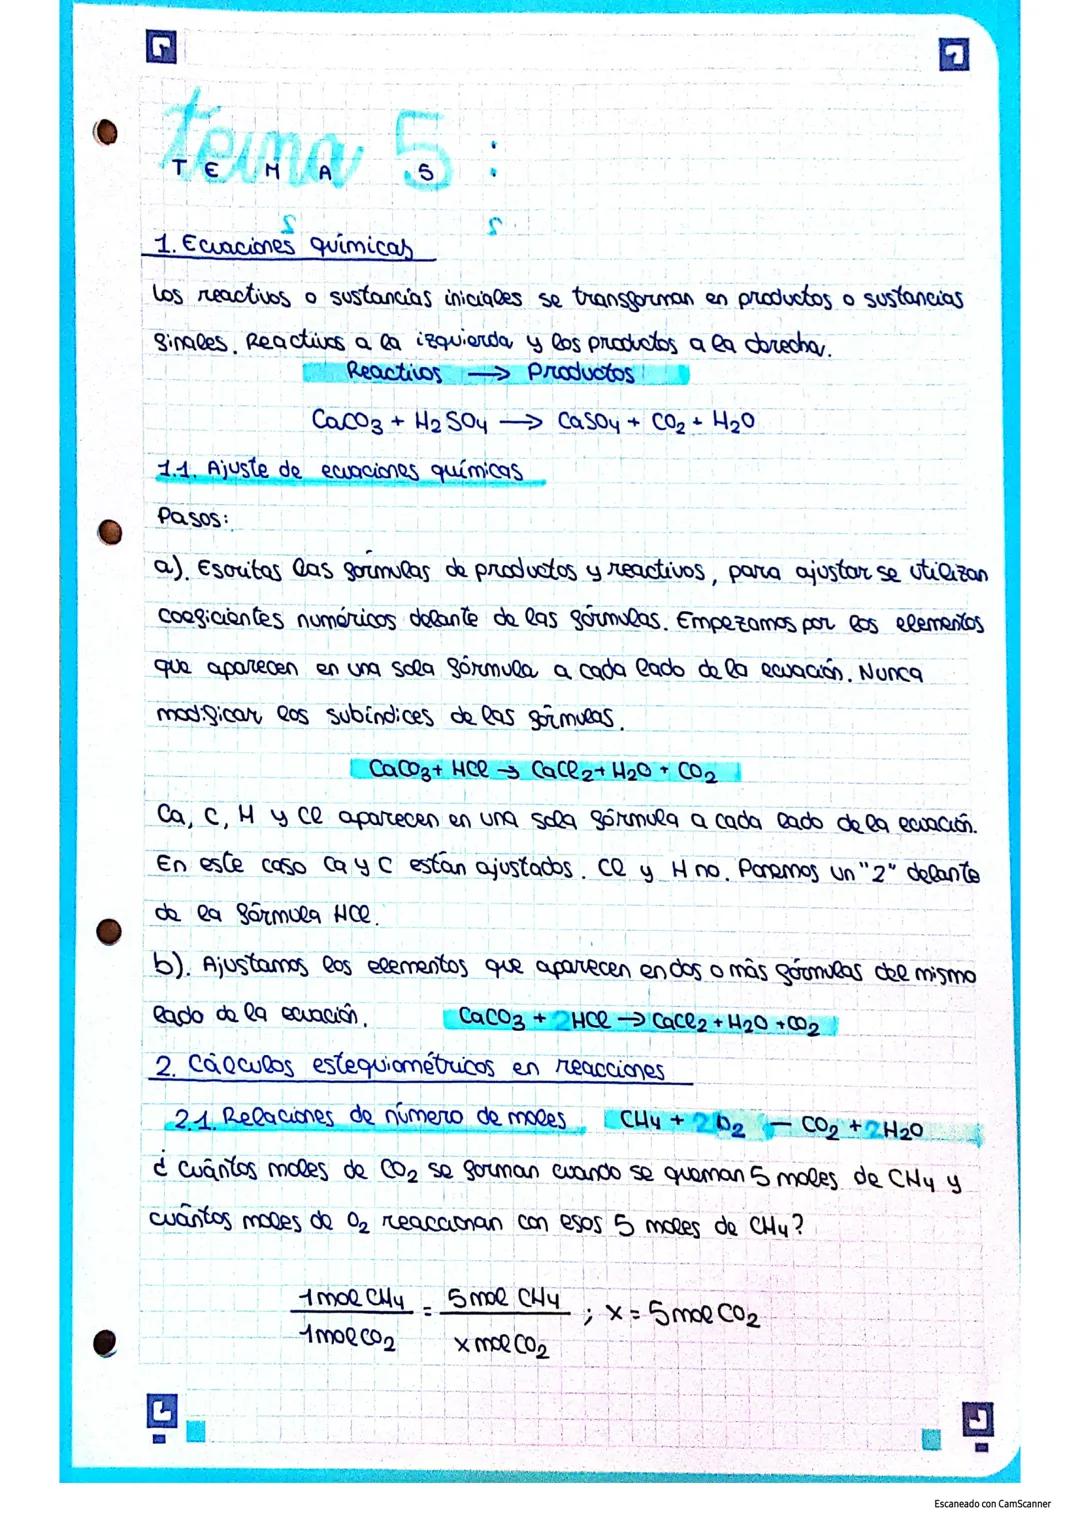 tema 5:
T E M A 5
1. Ecuaciones químicas
Los reactivos o sustancias iniciales se transforman en productos o sustancias
finales. Reactivos a la izquierda y los productos a la derecha.
Reactivos → Productos
CaCO3 + H2SO4 → CaSO4 + CO2 + H2O
1.1. Ajuste de ecuaciones químicas
Pasos:
a). Escritas las fórmulas de productos y reactivos, para ajustar se utilizan
coeficientes numéricos delante de las fórmulas. Empezamos por los elementos
que aparecen en una sola fórmula a cada lado de la ecuación. Nunca
modificar los subíndices de las fórmulas.
CaCO3 + HCl → CaCl2 + H2O + CO2
Ca, C, H y Cl aparecen en una sola fórmula a cada lado de la ecuación.
En este caso Ca y C están ajustados. Cl y H no. Ponemos un "2" delante
de la fórmula HCl.
b). Ajustamos los elementos que aparecen en dos o más fórmulas del mismo
lado de la ecuación. CaCO3 + 2HCl → CaCl2 + H2O + CO2
2. Cálculos estequiométricos en reacciones
2.1. Relaciones de número de moles CH4 + 2O2 — CO2 + 2H2O
¿cuántos moles de CO2 se forman cuando se queman 5 moles de CH4 y
cuántos moles de O2 reaccionan con esos 5 moles de CH4?
1mol CH4 / 1mol CO2 = 5mol CH4 / x mol CO2 ; x = 5mol CO2
Escaneado con CamScanner